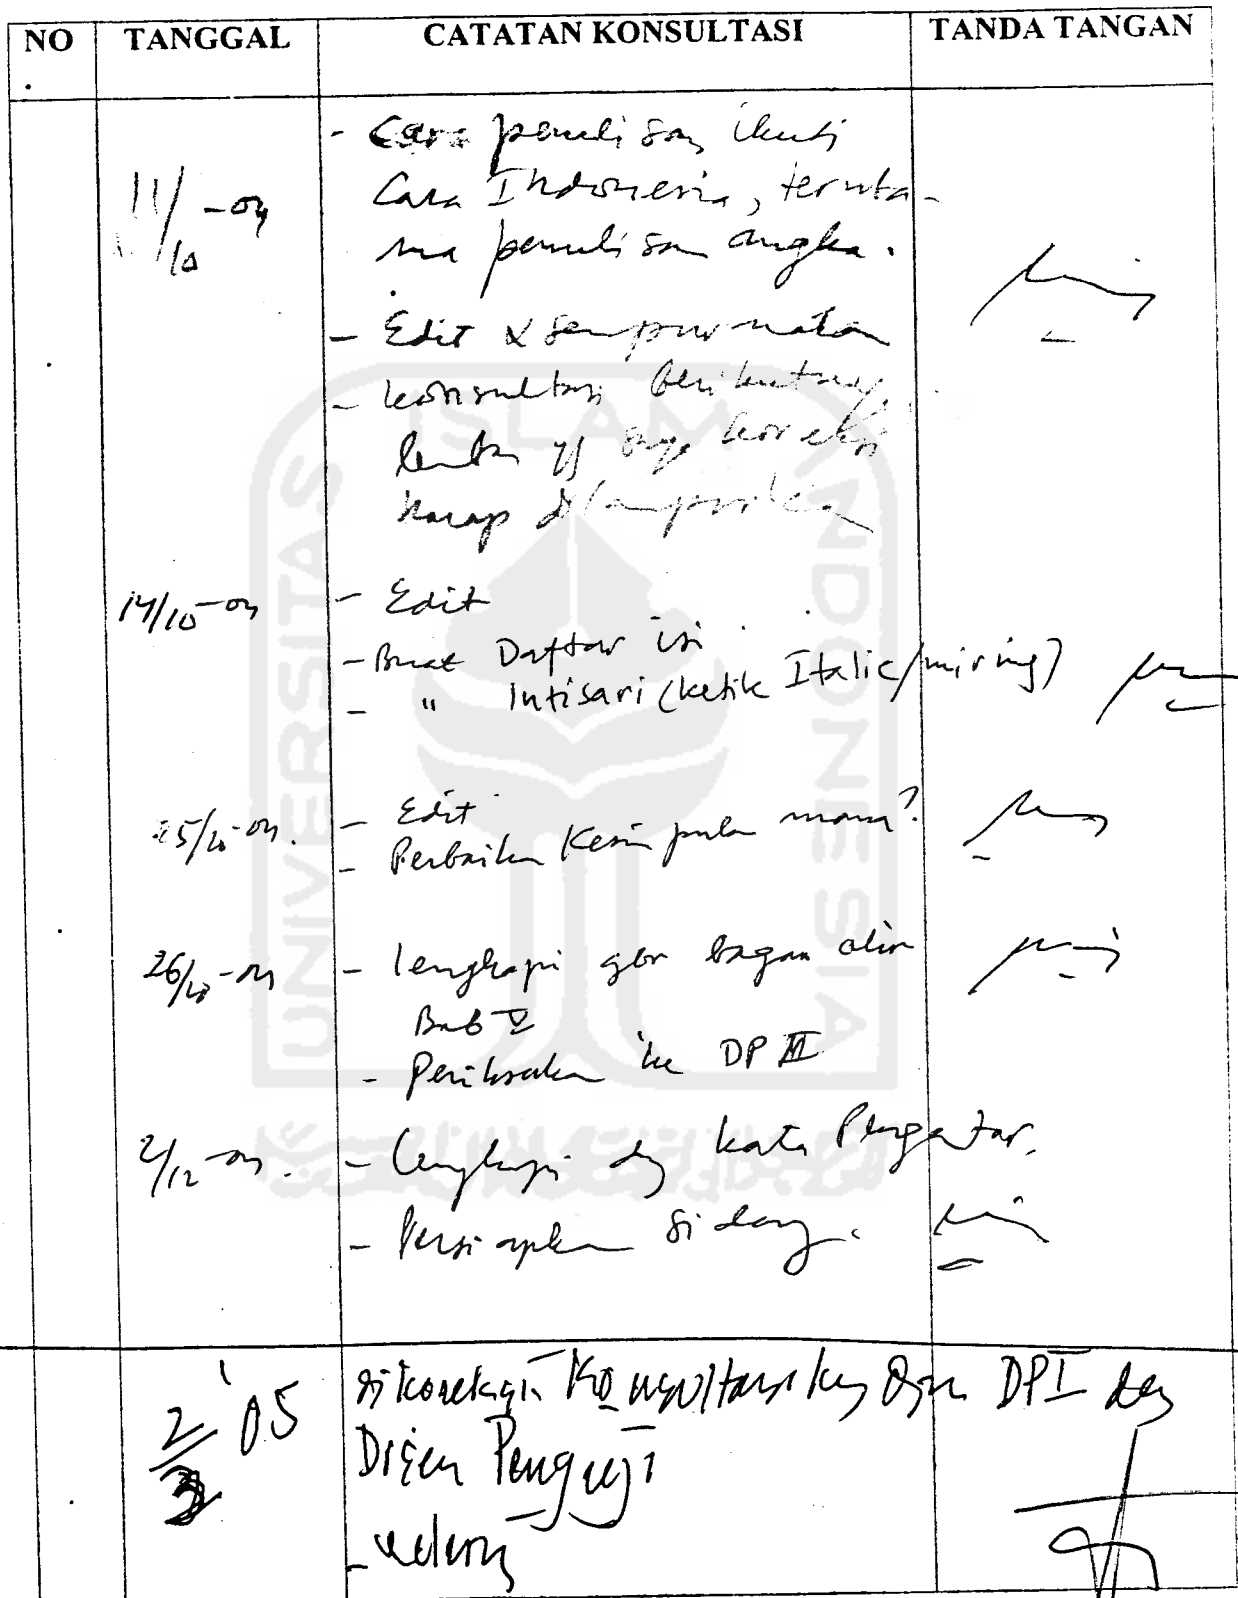 NO. TANGGAL CATATAN KONSULTASI TANDA TANGAN
- Cara penulisan ikuti
11/10-04 Cara Indonesia, teruta-
ma penulisan angka.
- Edit & sempurnakan
- konsultasi berikutnya
lembar yg saya koreksi
harap dilampirkan
14/10-04 - Edit
- Buat Daftar isi
- " Intisari (ketik Italic/miring)
25/10-04. - Edit
- Perbaikan Kesimpulan mana?
26/10-04 - lengkapi gbr bagan alir
Bab V
- Periksakan ke DP II
2/12-04. - Lengkapi dg kata Pengantar.
- Persiapkan Sidang.
2/3 '05 DPI
Dosen Penguji
UNIVERSITAS ISLAM INDONESIA